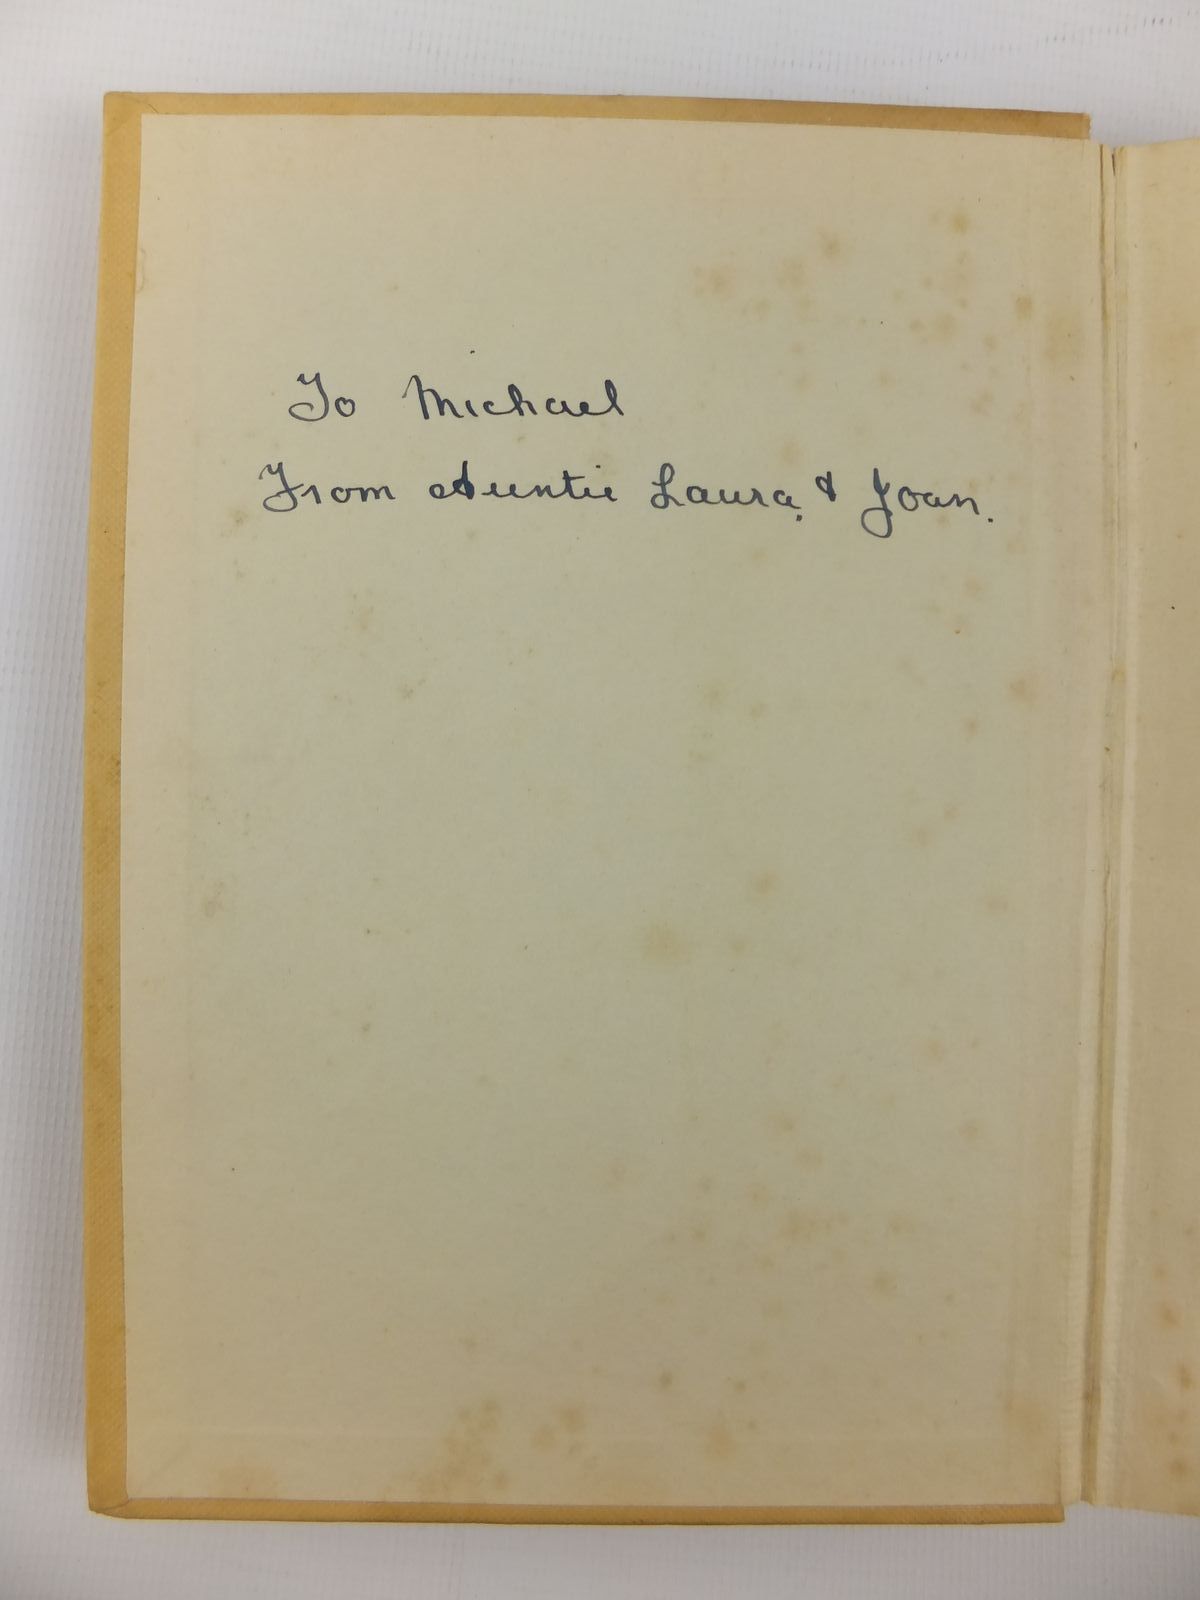 To Michael
From Auntie Laura, & Joan.